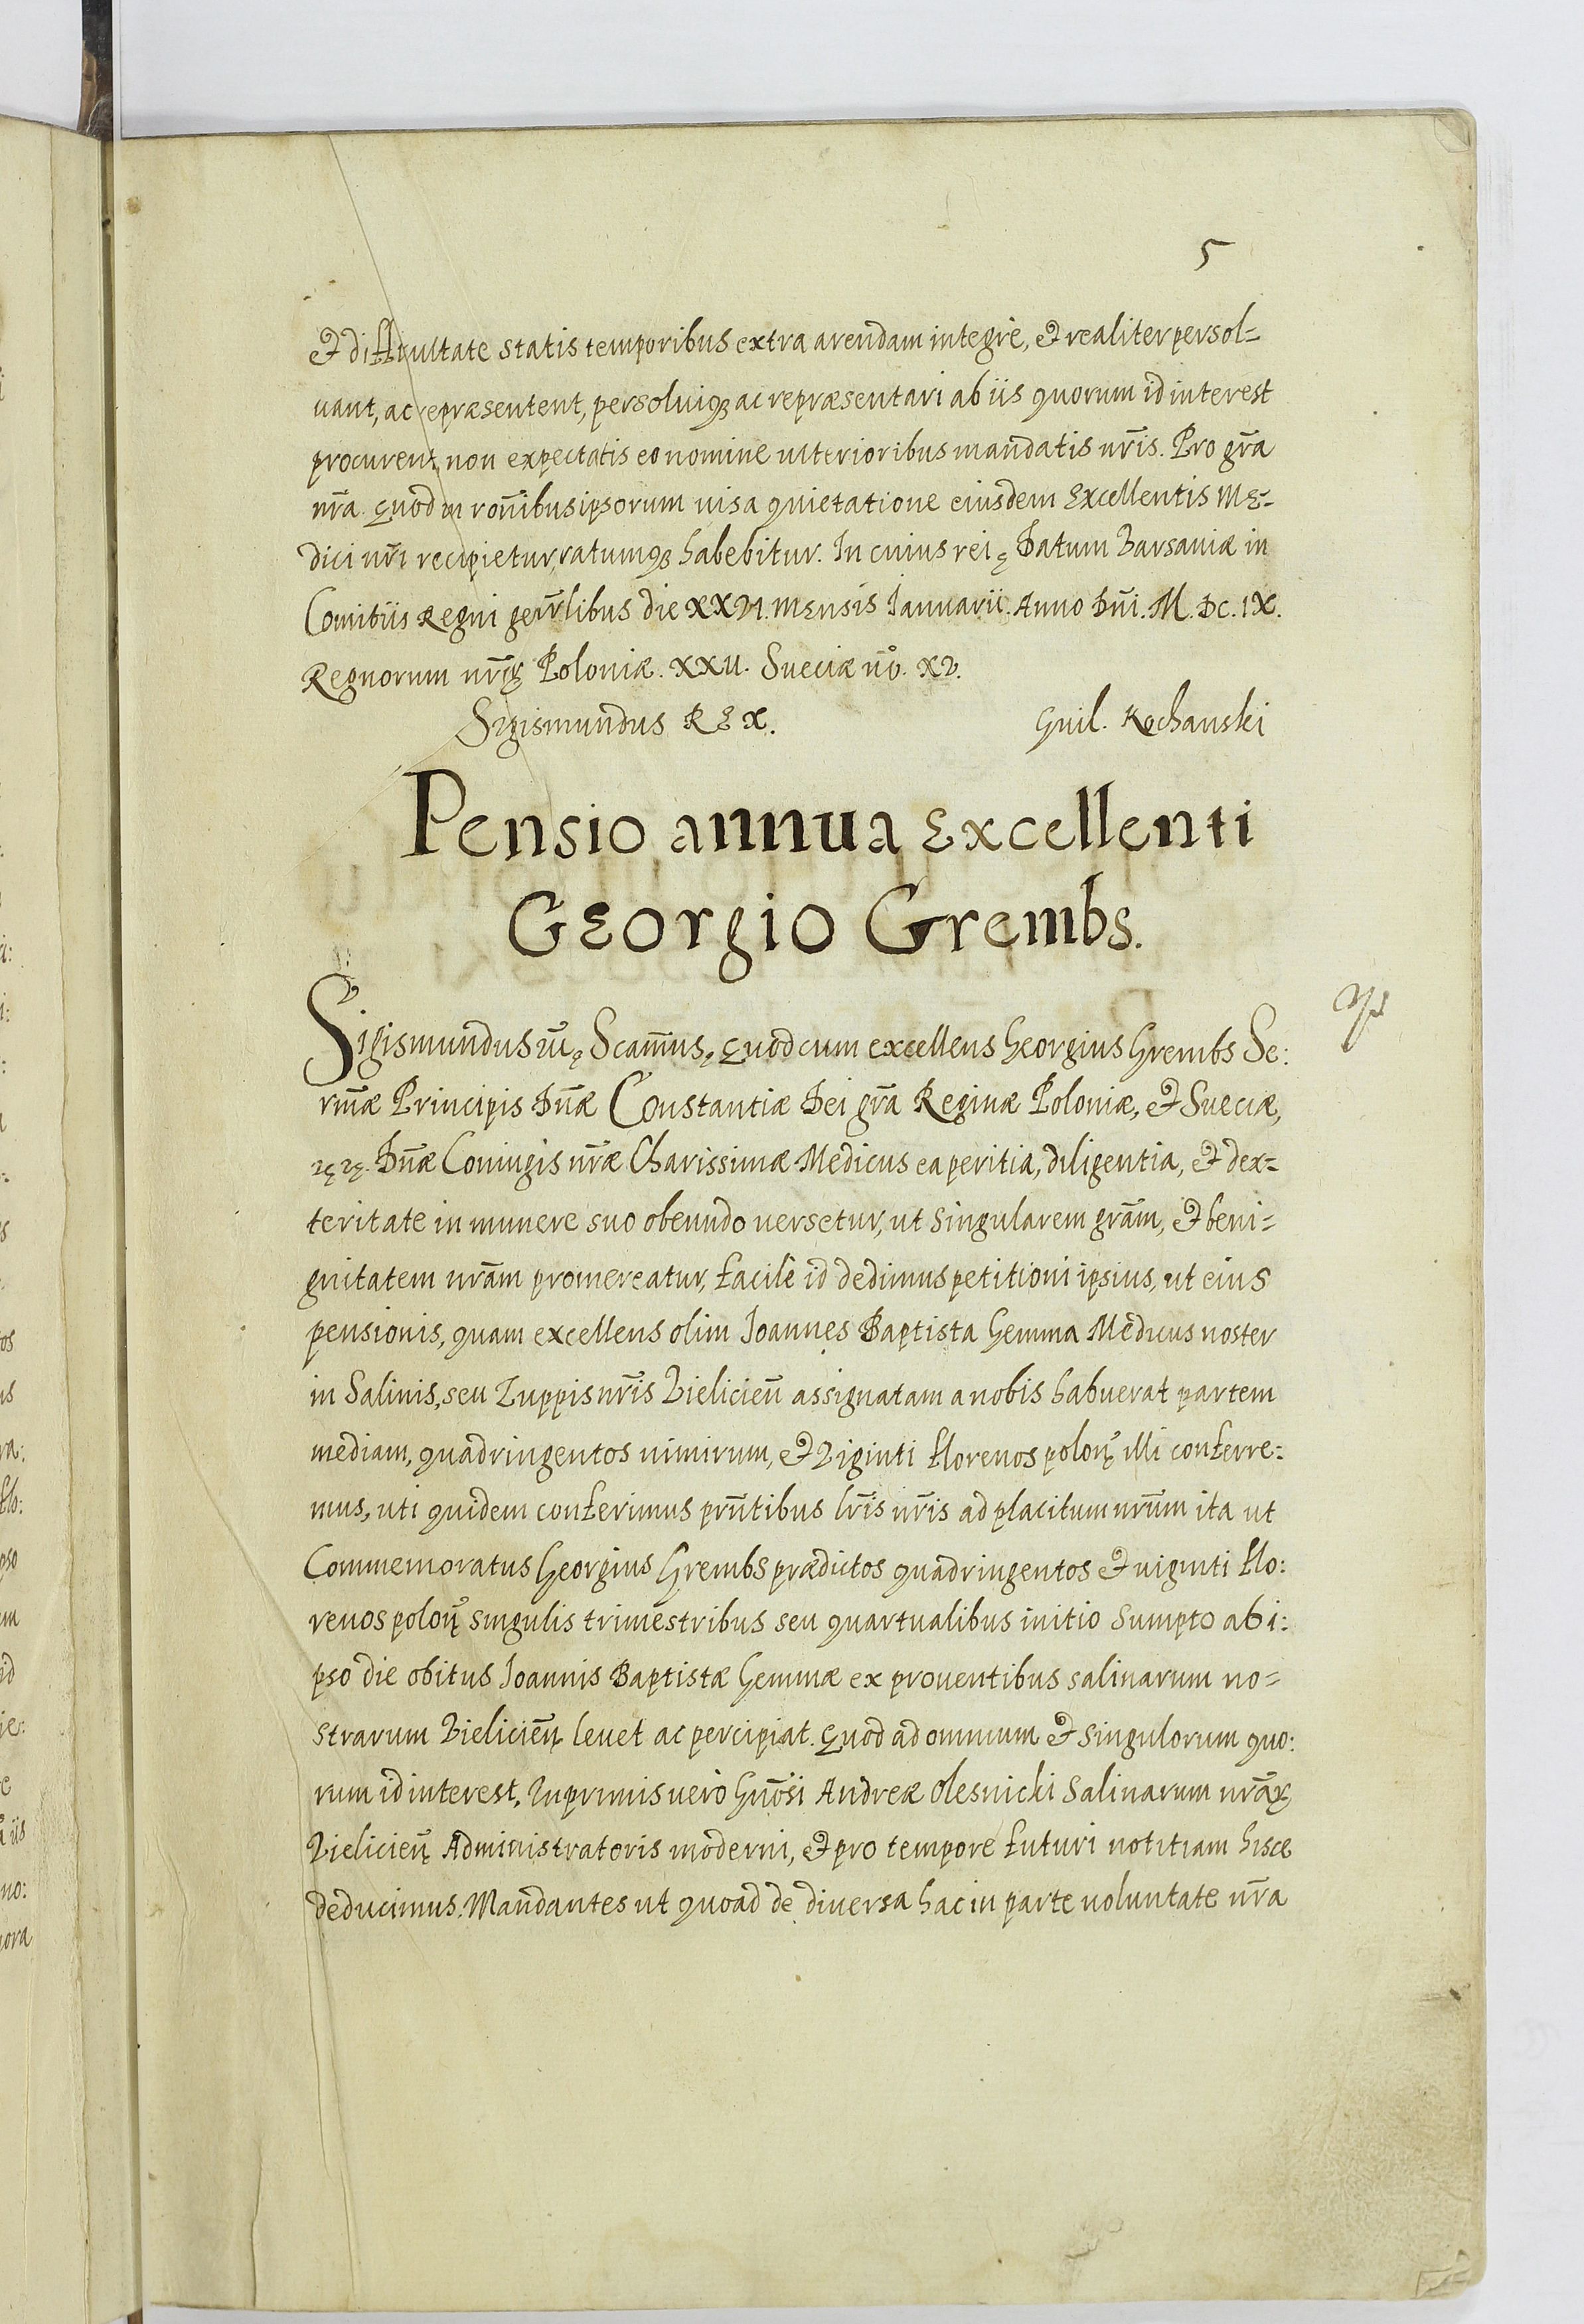 5
et difficultate statis temporibus extra arendam integrè, et realiter persol=
uant, ac repræsentent, persoluiq₃ ac repræsentari ab iis quorum id interest
procurent, non expectatis eo nomine ulterioribus mandatis nr̄is. Pro gr̄a
nr̄a. Quod in ron̄ibus ipsorum uisa quietatione eiusdem Excellentis Me=
dici nr̄i recipietur, ratumq₃ habebitur. In cuius rei ę Datum Varsaviæ in
Comitiis Regni gen̄rlibus die XXVI. Mensis Ianuarii. Anno Dn̄i. M. DC. IX.
Regnorum nr̄oꝝ Poloniæ. XXII. Sueciæ v̊o. XV.
Sigismundus REX.
Guil. Kochanski
Pensio annua Excellenti
Georgio Grembs.
Sigismundus IIĪ ę Scam̄us ę Quod cum excellens Georgius Grembs Se:
rm̄æ Principis Dn̄æ Constantiæ Dei gr̄a Reginæ Poloniæ, et Sueciæ,
ꝛę ꝛę. Dn̄æ Coniugis nr̄æ Charissimæ Medicus ea peritia, diligentia, et dex=
teritate in munere suo obeundo uersetur, ut singularem gr̄am, et beni=
gnitatem nr̄am promereatur, facilè id dedimus petitioni ipsius, ut eius
pensionis, quam excellens olim Ioannes Baptista Gemma Medicus noster
in Salinis, seu Zuppis nr̄is Vielicien̄ assignatam a nobis habuerat partem
mediam, quadringentos nimirum, et Viginti florenos polon̄ illi conferre:
mus, uti quidem conferimus prn̄tibus lr̄is nr̄is ad placitum nr̄um ita ut
Commemoratus Georgius Grembs prædictos quadringentos et uiginti flo:
renos polon̄ singulis trimestribus seu quartualibus initio sumpto ab i:
pso die obitus Ioannis Baptistæ Gemmæ ex prouentibus salinarum no=
strarum Vielicien̄ leuet ac percipiat. Quod ad omnium et singulorum quo:
rum id interest, Inprimis uero Gn̄osi Andreæ Olesnicki Salinarum nr̄aꝝ
Vielicien̄ Administratoris moderni, et pro tempore futuri notitiam hisce
deducimus. Mandantes ut quoad de diuersa hac in parte uoluntate nr̄a